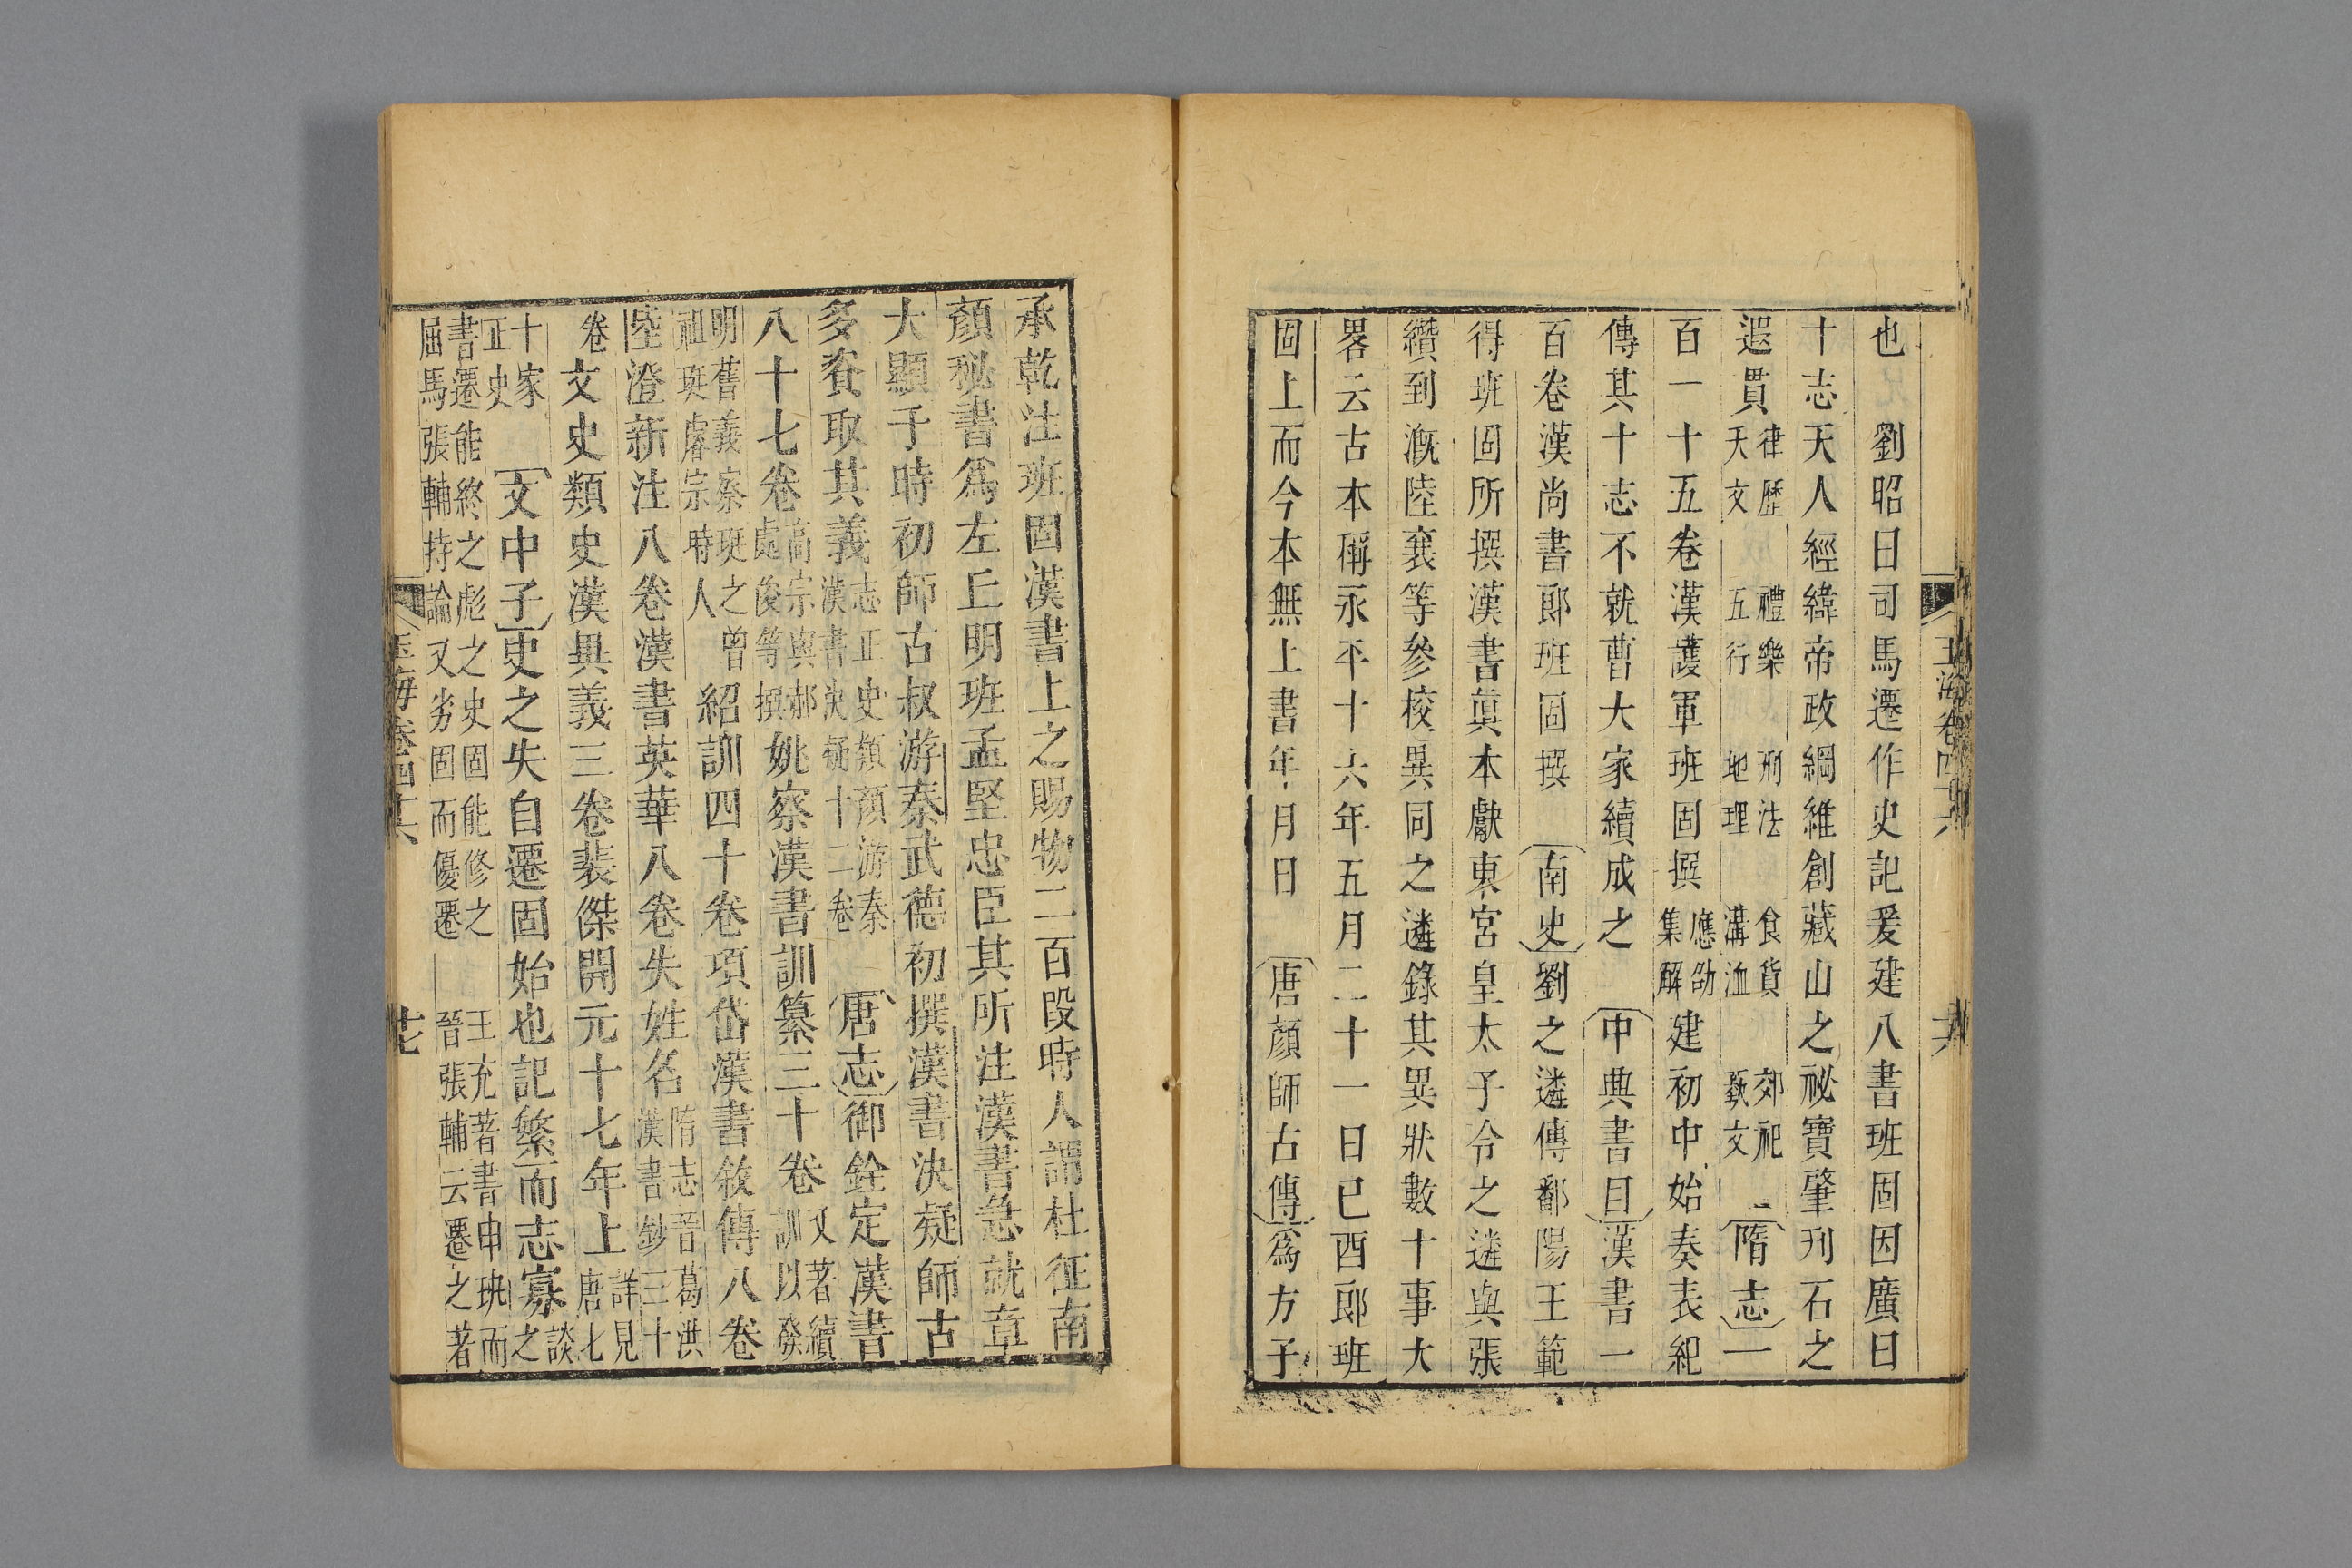 玉海卷四十六
十六
也 劉昭曰司馬遷作史記爰建八書班固因廣曰
十志天人經緯帝政綱維創藏山之祕寶肇刋石之
遐貫律歷天文 禮樂五行 刑法地理 食貨溝洫 郊祀蓺文 隋志一
百一十五卷漢護軍班固撰應劭集解建初中始奏表紀
傳其十志不就曹大家續成之 中興書目漢書一
百卷漢尚書郎班固撰 南史劉之遴傳鄱陽王範
得班固所撰漢書眞本獻東宮皇太子令之遴與張
纘到漑陸襄等參校異同之遴錄其異狀數十事大
畧云古本稱永平十六年五月二十一日己酉郎班
固上而今本無上書年月日 唐顏師古傳爲方子
承乾注班固漢書上之賜物二百段時人謂杜征南
顏秘書爲左丘明班孟堅忠臣其所注漢書急就章
大顯于時初師古叔游秦武德初撰漢書決疑師古
多資取其義志正史類顏游秦漢書決疑十二卷 唐志御銓定漢書
八十七卷高宗與郝處俊等撰姚察漢書訓纂三十卷又著續訓以發
明舊義察班之曾祖班睿宗時人 紹訓四十卷項岱漢書敘傳八卷
陸澄新注八卷漢書英華八卷失姓名隋志晉葛洪漢書鈔三十
卷文史類史漢異義三卷裴傑開元十七年上詳見唐七
十家正史 文中子史之失自遷固始也記繁而志寡談之
書遷能終之彪之史固能修之 王充著書申班而
屈馬張輔持論又劣固而優遷 晉張輔云遷之著
玉海卷四十六
十七